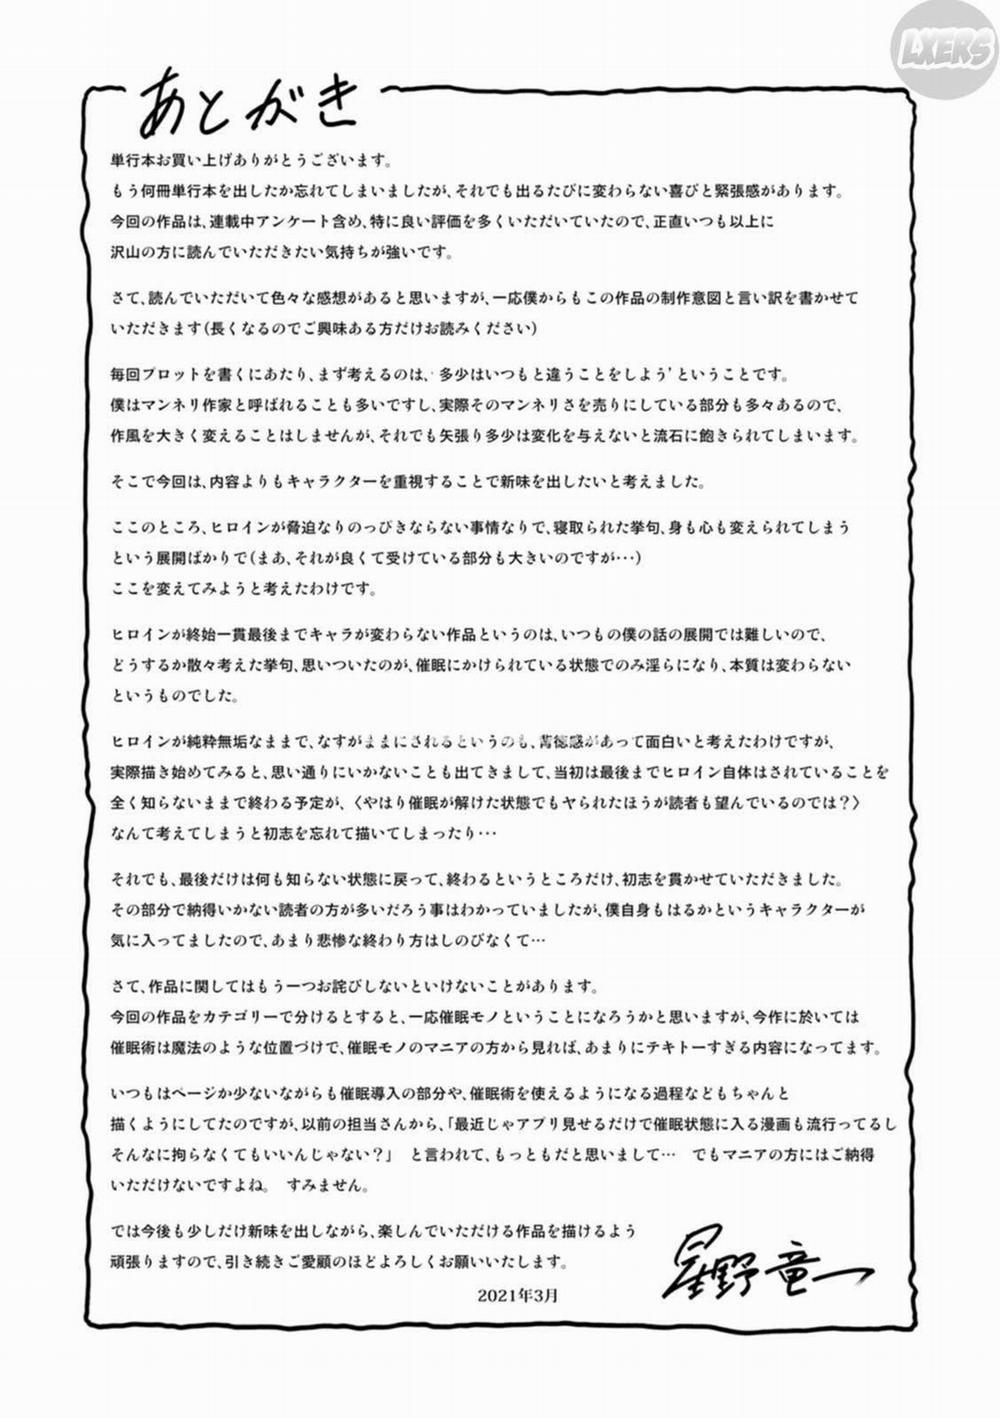 LXERS
あとがき
単行本お買い上げありがとうございます。
もう何冊単行本を出したか忘れてしまいましたが、それでも出るたびに変わらない喜びと緊張感があります。
今回の作品は、連載中アンケート含め、特に良い評価を多くいただいていたので、正直いつも以上に
沢山の方に読んでいただきたい気持ちが強いです。
さて、読んでいただいて色々な感想があると思いますが、一応僕からもこの作品の制作意図と言い訳を書かせて
いただきます(長くなるのでご興味ある方だけお読みください)
毎回プロットを書くにあたり、まず考えるのは、‘多少はいつもと違うことをしよう’ということです。
僕はマンネリ作家と呼ばれることも多いですし、実際そのマンネリさを売りにしている部分も多々あるので、
作風を大きく変えることはしませんが、それでも矢張り多少は変化を与えないと流石に飽きられてしまいます。
そこで今回は、内容よりもキャラクターを重視することで新味を出したいと考えました。
ここのところ、ヒロインが脅迫なりのっぴきならない事情なりで、寝取られた挙句、身も心も変えられてしまう
という展開ばかりで(まあ、それが良くて受けている部分も大きいのですが･･･)
ここを変えてみようと考えたわけです。
ヒロインが終始一貫最後までキャラが変わらない作品というのは、いつもの僕の話の展開では難しいので、
どうするか散々考えた挙句、思いついたのが、催眠にかけられている状態でのみ淫らになり、本質は変わらない
というものでした。
ヒロインが純粋無垢なままで、なすがままにされるというのも、背徳感があって面白いと考えたわけですが、
実際描き始めてみると、思い通りにいかないことも出てきまして、当初は最後までヒロイン自体はされていることを
全く知らないままで終わる予定が、〈やはり催眠が解けた状態でもヤられたほうが読者も望んでいるのでは？〉
なんて考えてしまうと初志を忘れて描いてしまったり･･･
それでも、最後だけは何も知らない状態に戻って、終わるというところだけ、初志を貫かせていただきました。
その部分で納得いかない読者の方が多いだろう事はわかっていましたが、僕自身もはるかというキャラクターが
気に入ってましたので、あまり悲惨な終わり方はしのびなくて…
さて、作品に関してはもう一つお詫びしないといけないことがあります。
今回の作品をカテゴリーで分けるとすると、一応催眠モノということになろうかと思いますが、今作に於いては
催眠術は魔法のような位置づけで、催眠モノのマニアの方から見れば、あまりにテキトーすぎる内容になってます。
いつもはページか少ないながらも催眠導入の部分や、催眠術を使えるようになる過程などもちゃんと
描くようにしてたのですが、以前の担当さんから、「最近じゃアプリ見せるだけで催眠状態に入る漫画も流行ってるし
そんなに拘らなくてもいいんじゃない？」　と言われて、もっともだと思いまして…　でもマニアの方にはご納得
いただけないですよね。　すみません。
では今後も少しだけ新味を出しながら、楽しんでいただける作品を描けるよう
頑張りますので、引き続きご愛顧のほどよろしくお願いいたします。
星野竜一
2021年3月